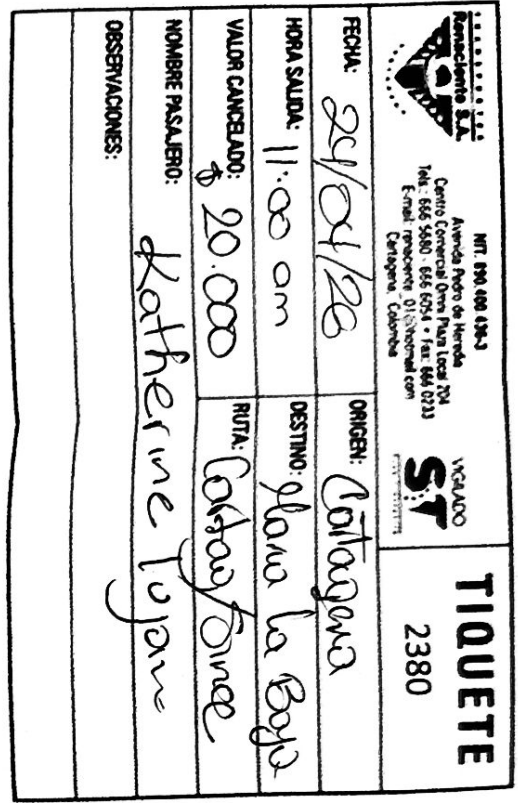 Renaciente S.A.
NIT. 890.400 436-3
Avenida Pedro de Heredia
Centro Comercial Omni Plaza Local 204
Tels.: 666 5680 - 666 6054 • Fax: 666 0233
E-mail: renaciente_01@hotmail.com
Cartagena, Colombia
VIGILADO
ST
TIQUETE
2380
FECHA: 24/04/26
ORIGEN: Cartagena
HORA SALIDA: 11:00 am
DESTINO: Maria La Baja
VALOR CANCELADO: $ 20.000
RUTA:
NOMBRE PASAJERO: Katherine
OBSERVACIONES: